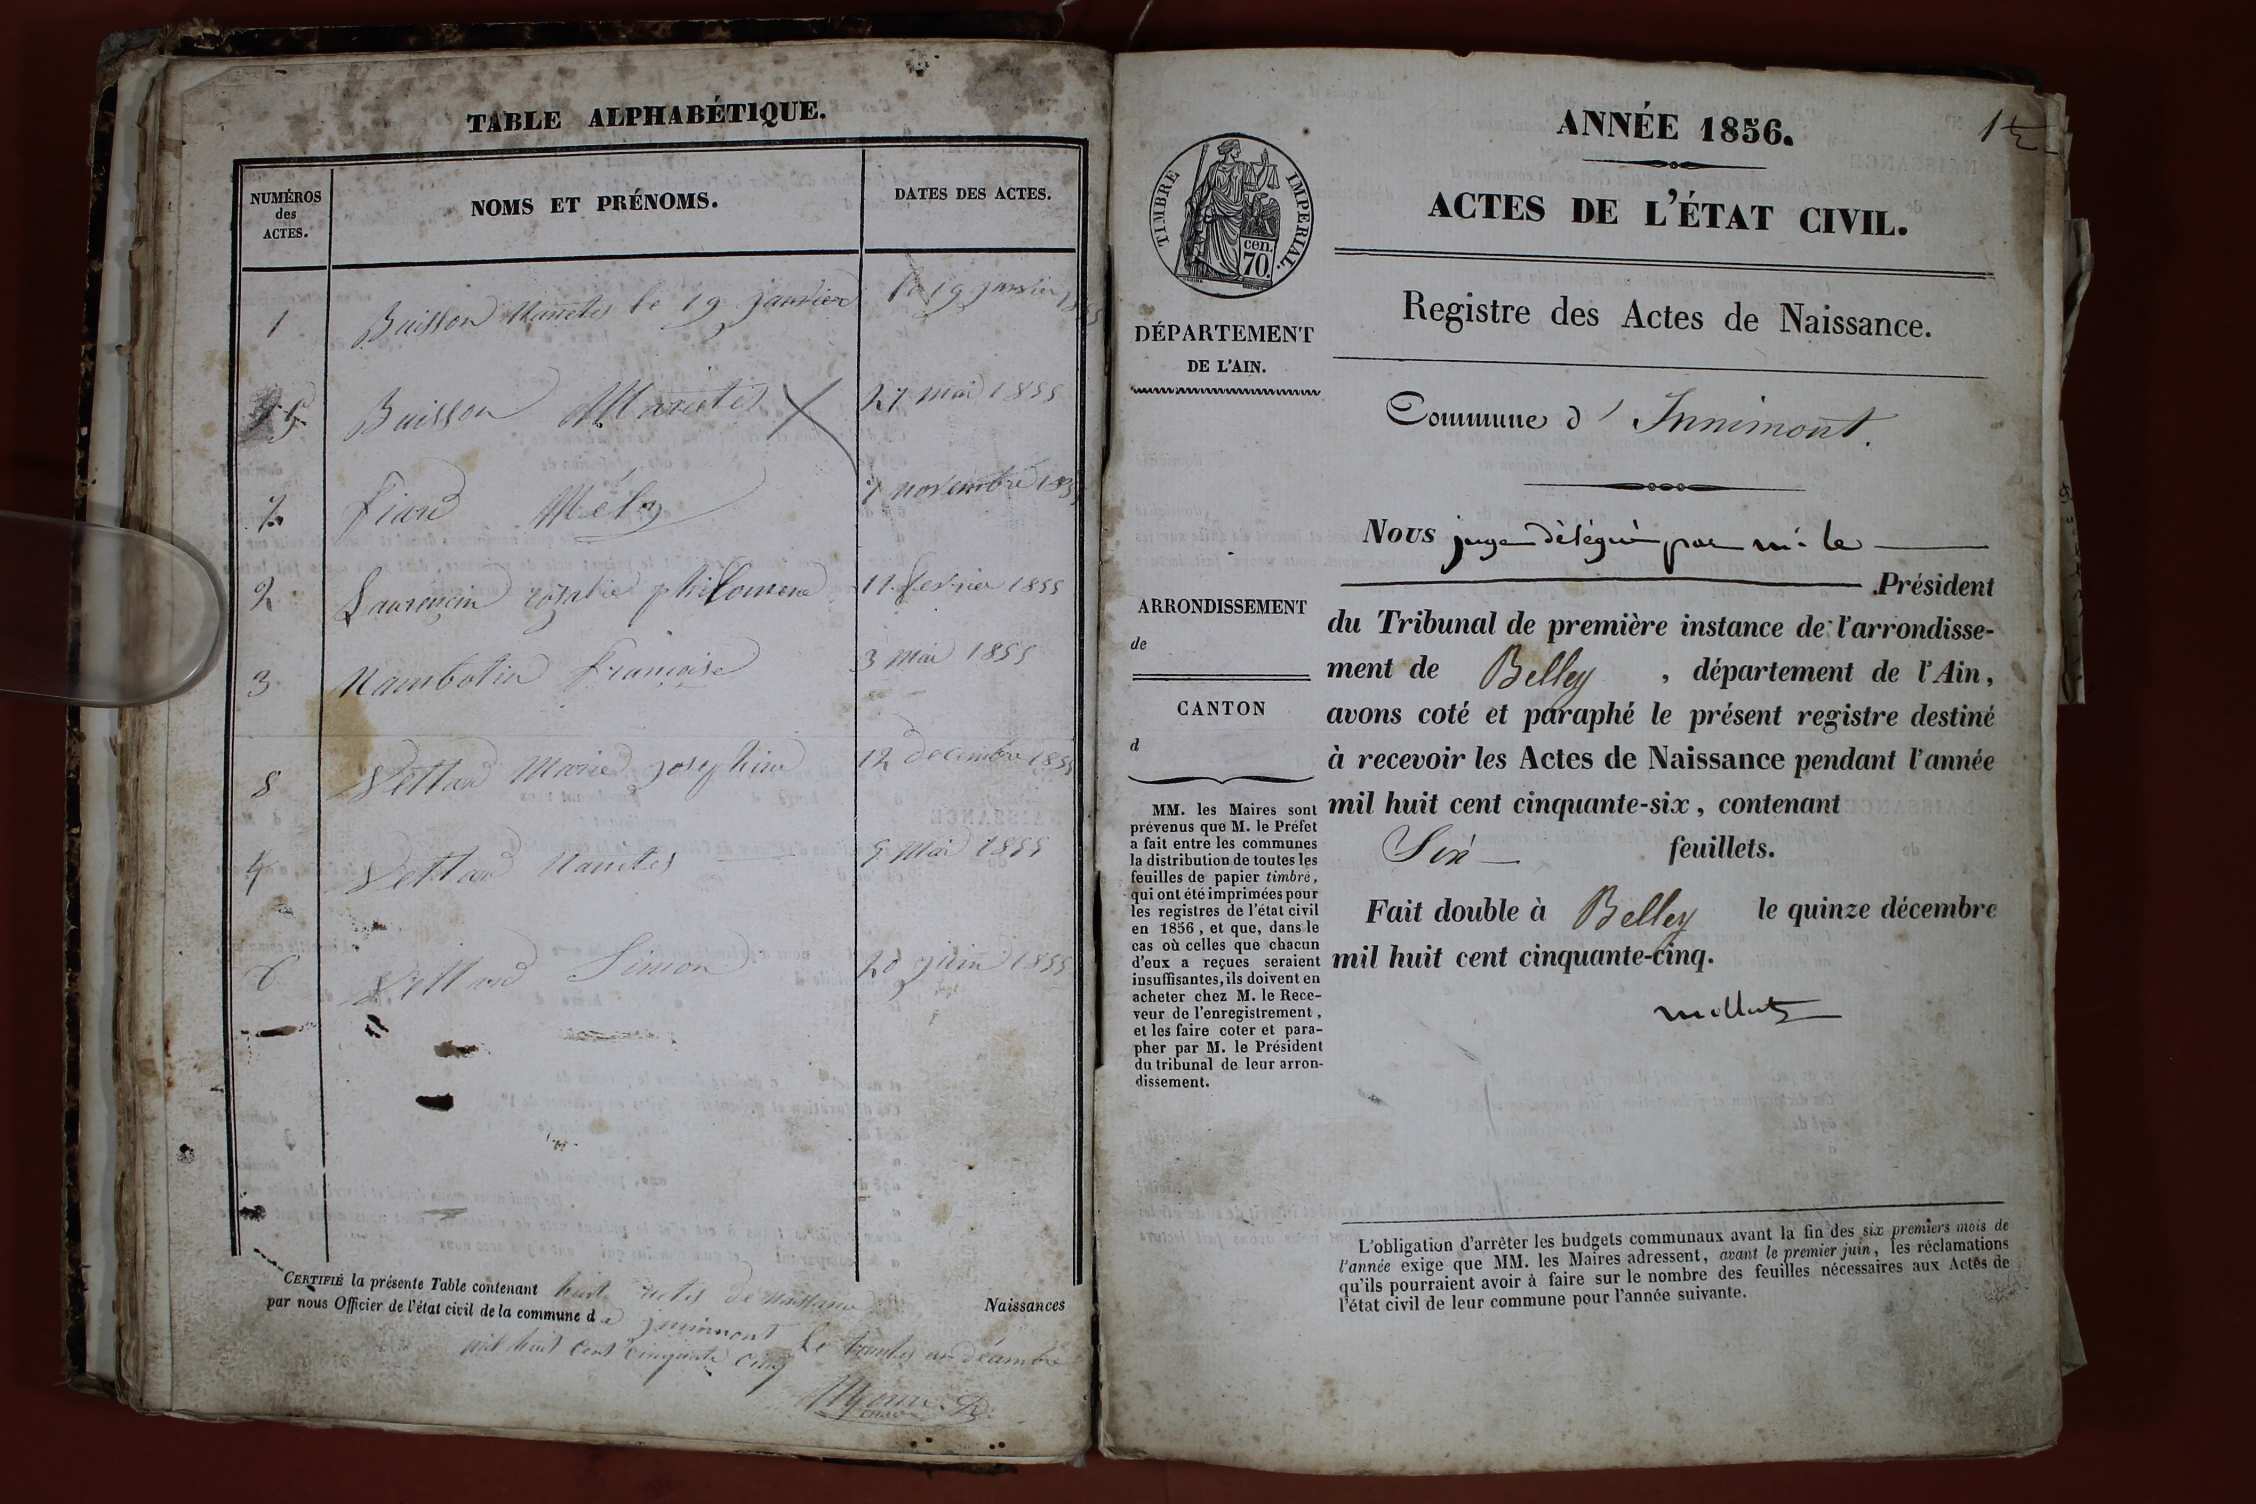 TABLE ALPHABÉTIQUE.
NUMÉROS
des
ACTES.
NOMS ET PRÉNOMS.
DATES DES ACTES.
1 Buisson Nanetes le 19 janvier le 19 janvier 1855
5 Buisson 27 mai 1855
7 Mély 7 novembre
2 Laurencin philomene 11 fevrier 1855
3 Nambotin françoise 3 Mai 1855
8 Vettard Marie josephine 12 decembre 1855
4 Vettard Nanetes 5 Mai 1855
6 Vettard Simon 20 1855
CERTIFIÉ la présente Table contenant huit actes de naissance Naissances
par nous Officier de l'état civil de la commune d innimont le trentes un décembre
mil huit cent cinquante cinq
ANNÉE 1856.
ACTES DE L'ÉTAT CIVIL.
TIMBRE IMPERIAL.
cen.
70.
Registre des Actes de Naissance.
DÉPARTEMENT
DE L'AIN.
Commune d' Innimont.
Nous juge délégué par m. le
Président
du Tribunal de première instance de l'arrondisse-
ment de Belley, département de l'Ain,
avons coté et paraphé le présent registre destiné
à recevoir les Actes de Naissance pendant l'année
mil huit cent cinquante-six, contenant
Six feuillets.
Fait double à Belley le quinze décembre
mil huit cent cinquante-cinq.
ARRONDISSEMENT
de
CANTON
d
MM. les Maires sont
prévenus que M. le Préfet
a fait entre les communes
la distribution de toutes les
feuilles de papier timbré,
qui ont été imprimées pour
les registres de l'état civil
en 1856, et que, dans le
cas où celles que chacun
d'eux a reçues seraient
insuffisantes, ils doivent en
acheter chez M. le Rece-
veur de l'enregistrement,
et les faire coter et para-
pher par M. le Président
du tribunal de leur arron-
dissement.
L'obligation d'arrêter les budgets communaux avant la fin des six premiers mois de
l'année exige que MM. les Maires adressent, avant le premier juin, les réclamations
qu'ils pourraient avoir à faire sur le nombre des feuilles nécessaires aux Actes de
l'état civil de leur commune pour l'année suivante.